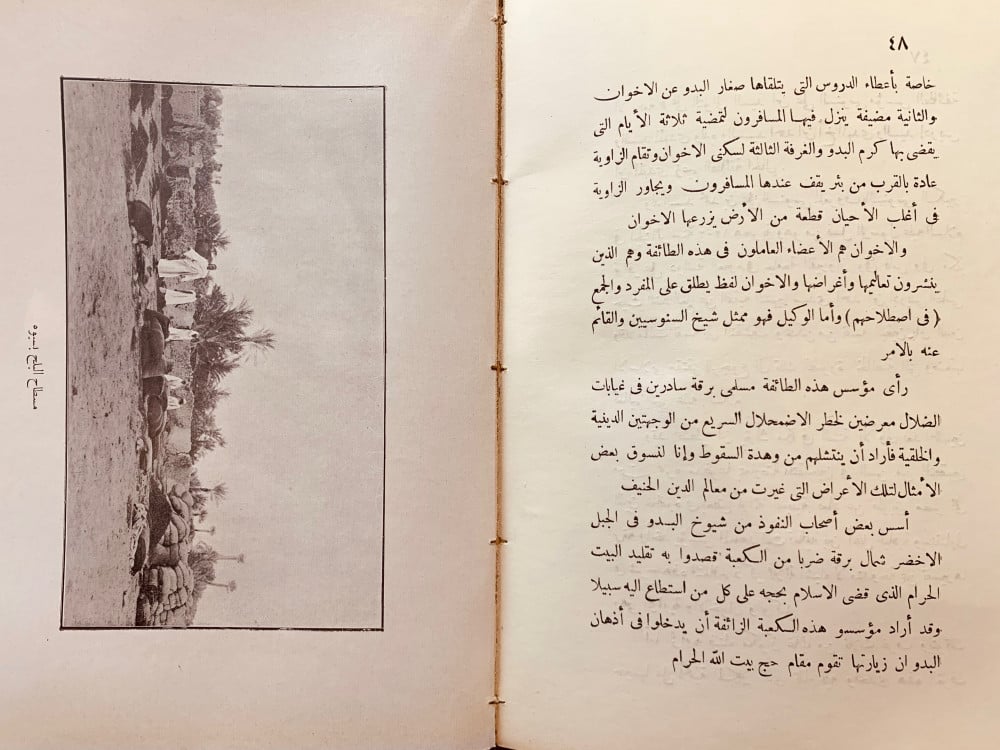 ٤٨
خاصة بأعطاء الدروس التى يتلقاها صغار البدو عن الاخوان
والثانية مضيفة ينزل فيها المسافرون لتمضية ثلاثة الأيام التى
يقضى بها كرم البدو والغرفة الثالثة لسكنى الاخوان وتقام الزاوية
عادة بالقرب من بئر يقف عندها المسافرون ويجاور الزاوية
فى أغلب الأحيان قطعة من الأرض يزرعها الاخوان
والاخوان هم الأعضاء العاملون فى هذه الطائفة وهم الذين
ينشرون تعاليمها وأغراضها والاخوان لفظ يطلق على المفرد والجمع
(فى اصطلاحهم) وأما الوكيل فهو ممثل شيخ السنوسيين والقائم
عنه بالامر
رأى مؤسس هذه الطائفة مسلمى برقة سادرين فى غيابات
الضلال معرضين لخطر الاضمحلال السريع من الوجهتين الدينية
والخلقية فأراد أن ينتشلهم من وهدة السقوط وإنا لنسوق بعض
الأمثال لتلك الأعراض التى غيرت من معالم الدين الحنيف
أسس بعض أصحاب النفوذ من شيوخ البدو فى الجبل
الاخضر شمال برقة ضربا من الكعبة قصدوا به تقليد البيت
الحرام الذى قضى الاسلام بحجه على كل من استطاع اليه سبيلا
وقد أراد مؤسسو هذه الكعبة الزائفة أن يدخلوا فى أذهان
البدو ان زيارتها تقوم مقام حج بيت الله الحرام
مسطاح البلح بسيوه